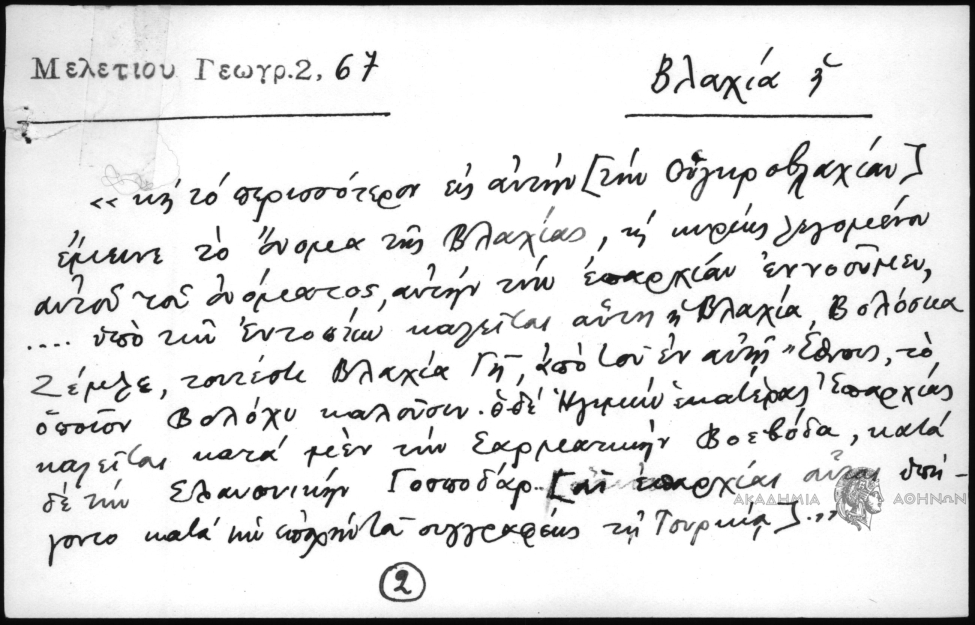 Μελετίου Γεωγρ.2, 67
Βλαχία ἡ
«κὴ τό περισσότερον εἰς αὐτὴν [τὴν Οὐγκροβλαχίαν]
ἔμεινε τὸ ὄνομα τῆς Βλαχίας, τῇ κυρίως λεγομένου
αὐτοῦ τοῦ ὀνόματος, αὐτὴν τὴν ἐπαρχίαν ἐννοοῦμεν,
.... ὑπὸ τῶν ἐντοπίων καλεῖται αὕτη ἡ Βλαχία, Βολόσκα
Ζέμλε, τουτέστι Βλαχία Γῆ, ἀπὸ τοῦ ἐν αὐτῇ Ἔθνους, τὸ
ὁποῖον Βολόχυ καλοῦσιν. ὁ δέ Ἡγεμών ἑκατέρας Ἐπαρχίας
καλεῖται κατά μέν τήν Σαρματικήν Βοεβόδα, κατά
δέ τήν Σλαυονικήν Γοσποδάρ. [αἱ ἐπαρχίαι αὗται ὑπή-
γοντο κατά τὴν ἐποχὴν τοῦ συγγραφέως τῇ Τουρκίᾳ]..»
ΑΚΑΔΗΜΙΑ ΑΘΗΝΩΝ
2